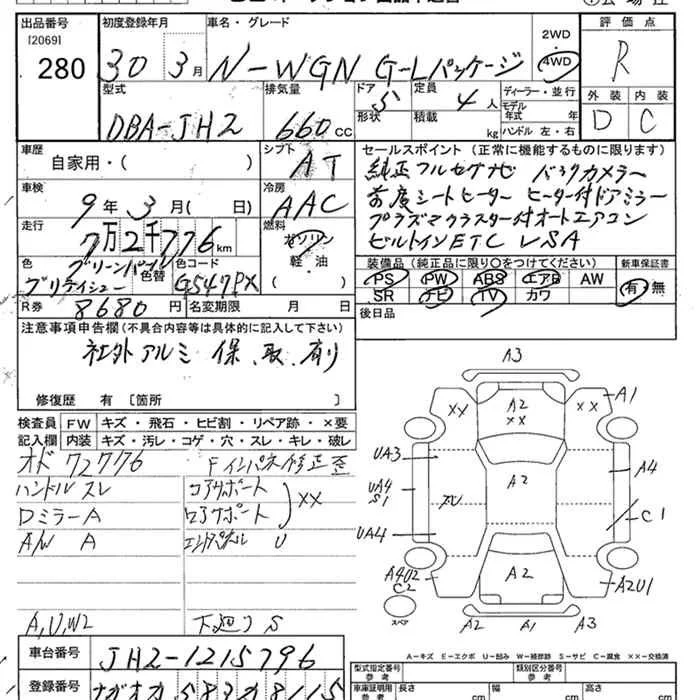 出品番号
[2069]
280
初度登録年月
30 3月
車名・グレード
N-WGN G-Lパッケージ
2WD
・
4WD
評価点
R
外装 内装
D C
型式
DBA-JH2
排気量
660cc
ドア
5
形状
定員
4人
積載
kg
ディーラー・並行
モデル
年式 年
ハンドル 左・右
車歴
自家用・( )
シフト
AT
車検
9年 3月( 日)
冷房
AAC
走行
7万2千776km
燃料
ガソリン
軽・油
・( )
色
グリーンパール
色替
色コード
G547PX
R券
8680円
名変期限 月 日
セールスポイント(正常に機能するものに限ります)
純正フルセグナビ バックカメラー
前席シートヒーター ヒーター付ドアミラー
プラズマクラスター付オートエアコン
ビルトインETC VSA
装備品(純正品に限り○をつけてください) 新車保証書
PS PW ABS エアB AW
SR ナビ TV カワ
有・無
後日品
注意事項申告欄(不具合内容等は具体的に記入して下さい)
社外アルミ 保、取、有り
修復歴 有[箇所 ]
検査員 FW キズ・飛石・ヒビ割・リペア跡・×要
記入欄 内装 キズ・汚レ・コゲ・穴・スレ・キレ・破レ
オド 72776
Fインパネ修正歪
ハンドルスレ
コアサポート
DミラーA
ロアサポート
××
A/W A
エンドパネル U
A,U,W2
下廻りS
A3
A1
××
A2
××
××
UA3
A4
A2
UA4
S1
C1
UA4
A4U2
C2
A2
A2U1
A2
A1
A3
スペア
A-キズ E-エクボ U-凹み W-補修跡 S-サビ C-腐食 ××-交換済
車台番号
JH2-1215796
登録番号
ナガオカ 583 ろ 8115
型式指定番号
参考
類別区分番号
参考
車庫証明用
参考
長さ
cm
幅
cm
高さ
cm